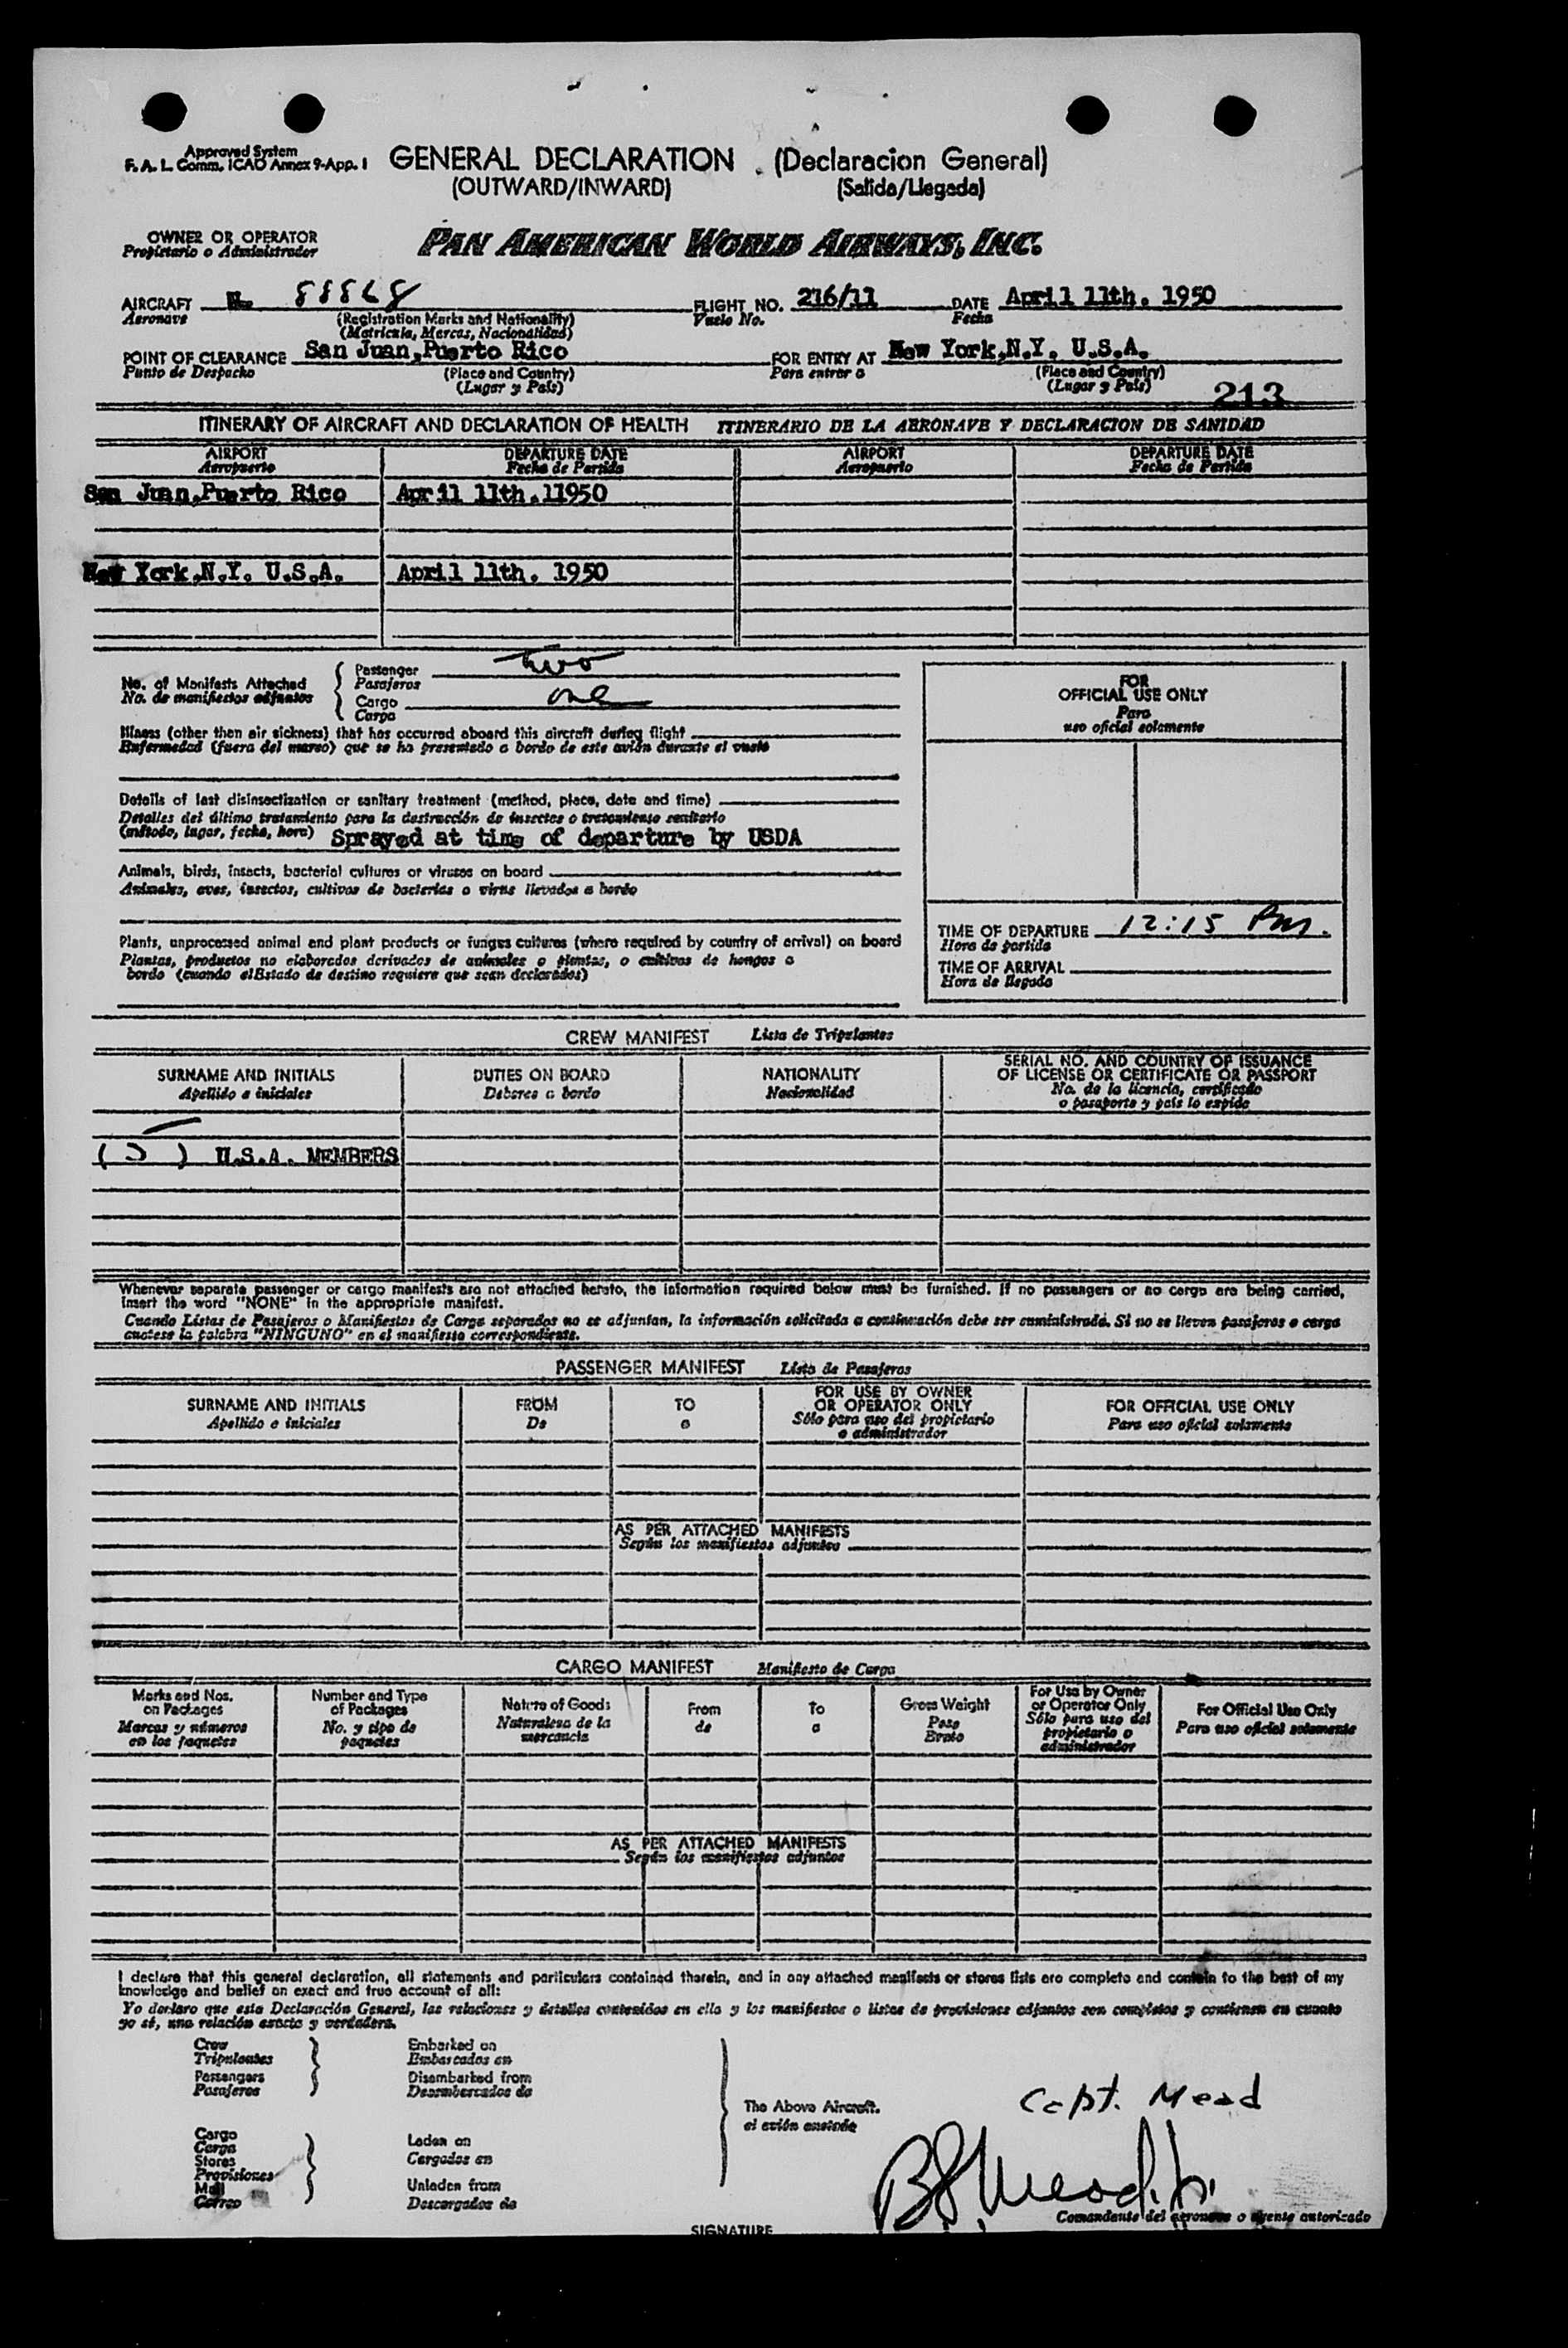 Approved System
F. A. L. Comm. ICAO Annex 9-App. 1
GENERAL DECLARATION (Declaracion General)
(OUTWARD/INWARD) (Salida/Llegada)
OWNER OR OPERATOR
Propietario o Administrador
PAN AMERICAN WORLD AIRWAYS, INC.
AIRCRAFT N. 88868 FLIGHT NO. 216/11 DATE April 11th. 1950
Aeronave (Registration Marks and Nationality) Vuelo No. Fecha
(Matricula, Marcas, Nacionalidad)
POINT OF CLEARANCE San Juan,Puerto Rico FOR ENTRY AT New York,N.Y. U.S.A.
Punto de Despacho (Place and Country) Para entrar a (Place and Country)
(Lugar y País) (Lugar y País)
213
ITINERARY OF AIRCRAFT AND DECLARATION OF HEALTH ITINERARIO DE LA AERONAVE Y DECLARACION DE SANIDAD
AIRPORT DEPARTURE DATE AIRPORT DEPARTURE DATE
Aeropuerto Fecha de Partida Aeropuerto Fecha de Partida
San Juan,Puerto Rico April 11th.11950
New York,N.Y. U.S.A. April 11th. 1950
No. of Manifests Attached Passenger two
No. de manifiestos adjuntos Pasajeros
Cargo one
Carga
FOR
OFFICIAL USE ONLY
Para
uso oficial solamente
Illness (other than air sickness) that has occurred aboard this aircraft during flight
Enfermedad (fuera del mareo) que se ha presentado a bordo de este avión durante el vuelo
Details of last disinsectization or sanitary treatment (method, place, date and time)
Detalles del último tratamiento para la destrucción de insectos o tratamiento sanitario
(método, lugar, fecha, hora) Sprayed at time of departure by USDA
Animals, birds, insects, bacterial cultures or viruses on board
Animales, aves, insectos, cultivos de bacterias o virus llevados a bordo
Plants, unprocessed animal and plant products or fungus cultures (where required by country of arrival) on board
Plantas, productos no elaborados derivados de animales o plantas, o cultivos de hongos a
bordo (cuando elEstado de destino requiere que sean declarados)
TIME OF DEPARTURE 12:15 PM.
Hora de partida
TIME OF ARRIVAL
Hora de llegada
CREW MANIFEST Lista de Tripulantes
SURNAME AND INITIALS DUTIES ON BOARD NATIONALITY SERIAL NO. AND COUNTRY OF ISSUANCE
OF LICENSE OR CERTIFICATE OR PASSPORT
Apellido e iniciales Deberes a bordo Nacionalidad No. de la licencia, certificado
o pasaporte y país lo expide
( 5 ) U.S.A. MEMBERS
Whenever separate passenger or cargo manifests are not attached hereto, the information required below must be furnished. If no passengers or no cargo are being carried,
insert the word "NONE" in the appropriate manifest.
Cuando Listas de Pasajeros o Manifiestos de Carga separados no se adjuntan, la información solicitada a continuación debe ser suministrada. Si no se lleven pasajeros o carga
anotese la palabra "NINGUNO" en el manifiesto correspondiente.
PASSENGER MANIFEST Lista de Pasajeros
SURNAME AND INITIALS FROM TO FOR USE BY OWNER
OR OPERATOR ONLY FOR OFFICIAL USE ONLY
Apellido e iniciales De a Sólo para uso del propietario
o administrador Para uso oficial solamente
AS PER ATTACHED MANIFESTS
Según los manifiestos adjuntos
CARGO MANIFEST Manifiesto de Carga
Marks and Nos.
on Packages
Marcas y números
en los paquetes
Number and Type
of Packages
No. y tipo de
paquetes
Nature of Goods
Naturalesa de la
mercancia
From
de
To
a
Gross Weight
Peso
Bruto
For Use by Owner
or Operator Only
Sólo para uso del
propietario o
administrador
For Official Use Only
Para uso oficial solamente
AS PER ATTACHED MANIFESTS
Según los manifiestos adjuntos
I declare that this general declaration, all statements and particulars contained therein, and in any attached manifests or stores lists are complete and contain to the best of my
knowledge and belief an exact and true account of all:
Yo declaro que esta Declaración General, las relaciones y detalles contenidos en ella y los manifiestos o listas de provisiones adjuntos son completos y contienen en cuanto
yo sé, una relación exacta y verdadera.
Crew Embarked on
Tripulantes Embarcados en
Passengers Disembarked from
Pasajeros Desembarcados de
The Above Aircraft.
el avión
Capt. Mead
Cargo
Carga
Stores
Provisiones
Mail
Correo
Laden on
Cargados en
Unladen from
Descargados de
SIGNATURE
Comandante del aeronave o agente autorizado